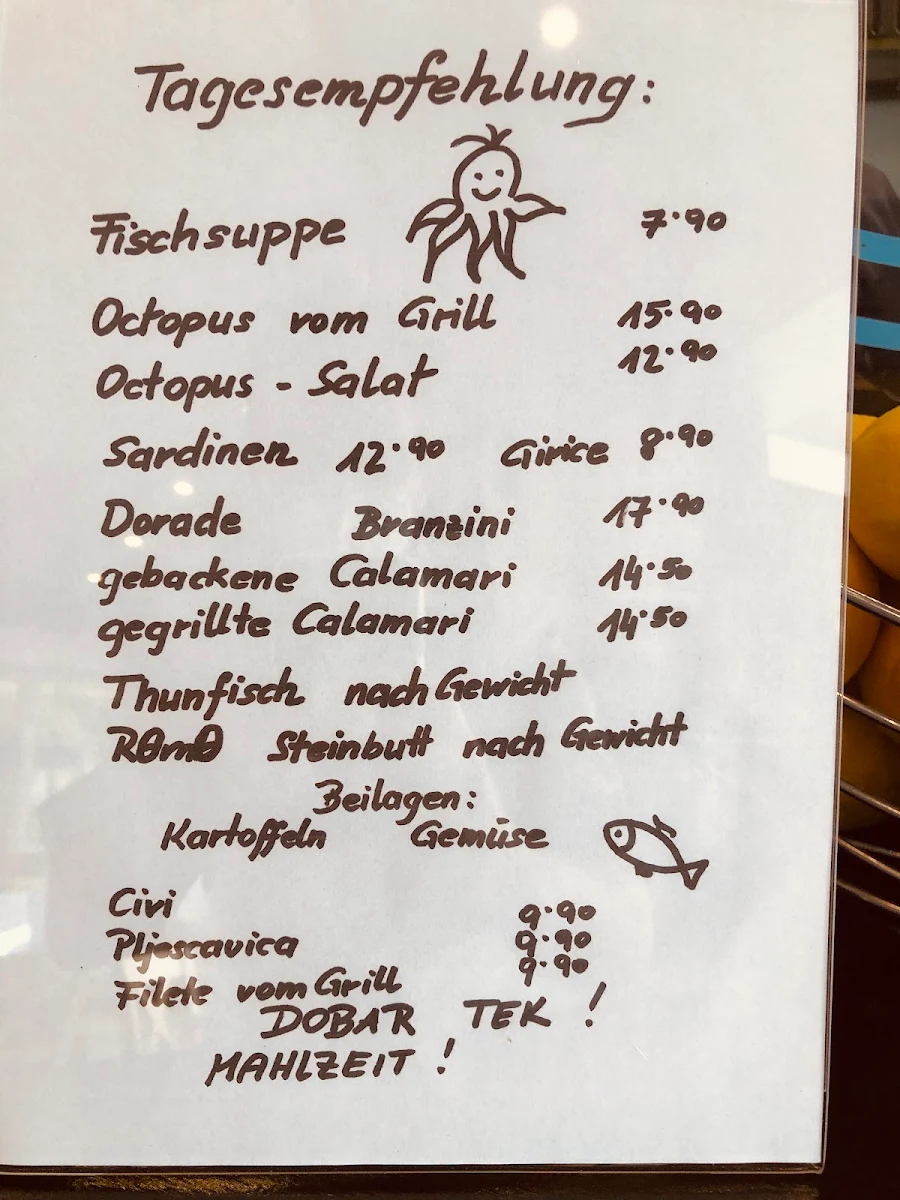 Tagesempfehlung:
Fischsuppe 7.90
Octopus vom Grill 15.90
Octopus - Salat 12.90
Sardinen 12.90 Girice 8.90
Dorade Branzini 17.90
gebackene Calamari 14.50
gegrillte Calamari 14.50
Thunfisch nach Gewicht
Steinbutt nach Gewicht
Beilagen:
Kartoffeln Gemüse
Civi 9.90
Pljescavica 9.90
Filete vom Grill 9.90
DOBAR TEK !
MAHLZEIT !